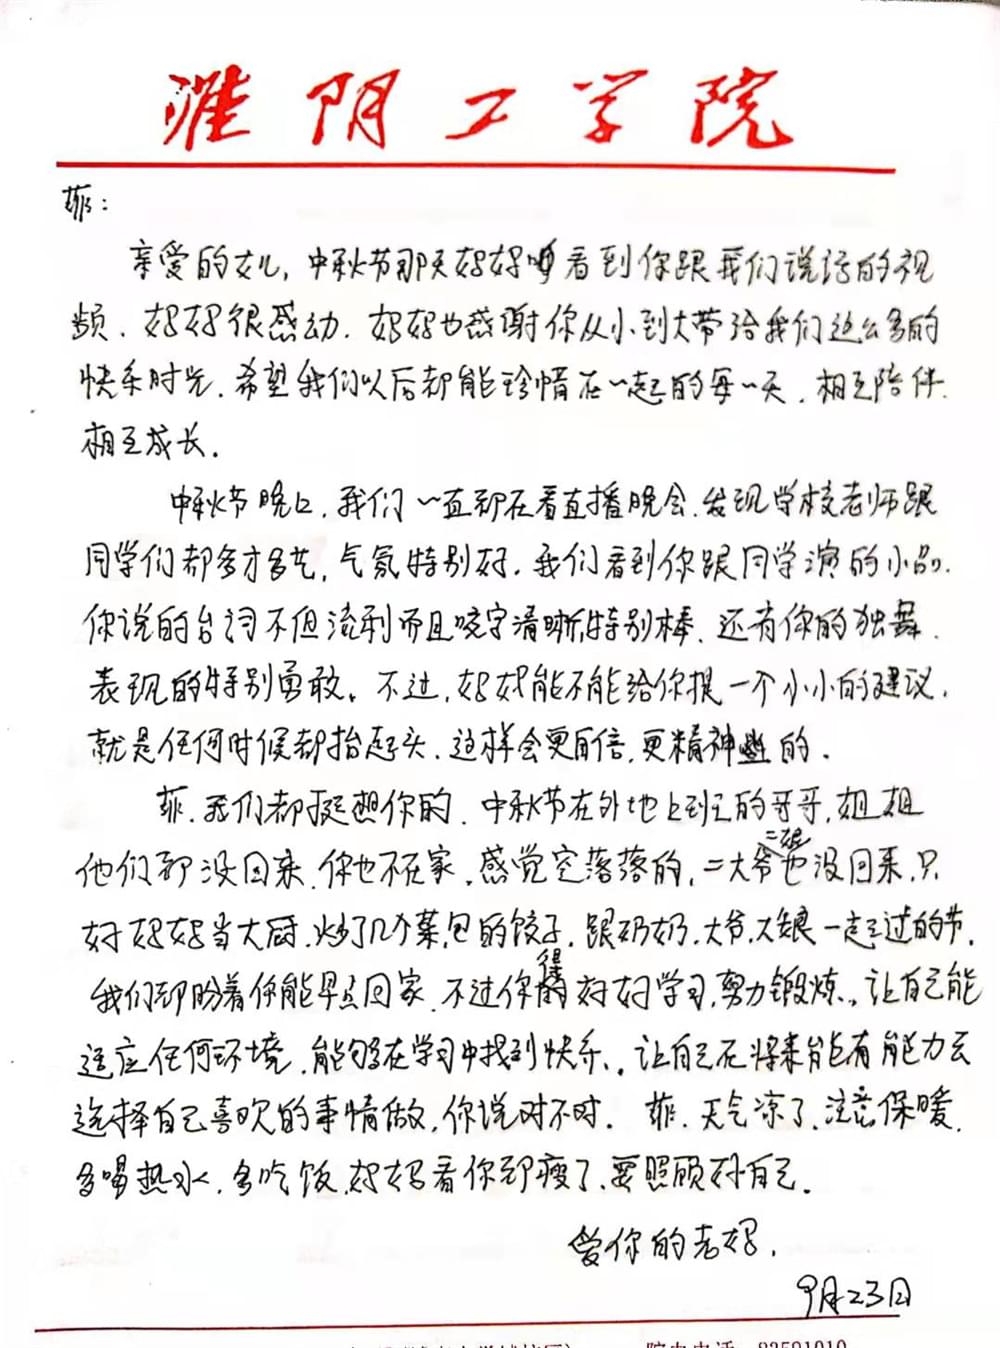 淮阴工学院
菲：
亲爱的女儿，中秋节那天妈妈看到你跟我们说话的视
频，妈妈很感动，妈妈也感谢你从小到大带给我们这么多的
快乐时光，希望我们以后都能珍惜在一起的每一天，相互陪伴，
相互成长。
中秋节晚上，我们一直都在看直播晚会，发现学校老师跟
同学们都多才多艺，气氛特别好，我们看到你跟同学演的小品，
你说的台词不但流利而且咬字清晰，特别棒，还有你的独舞，
表现的特别勇敢。不过，妈妈能不能给你提一个小小的建议，
就是任何时候都抬起头，这样会更自信，更精神的。
菲，我们都挺想你的，中秋节在外地上班的哥哥，姐姐
他们都没回来，你也不在家，感觉空落落的，二大爷二娘也没回来，只
好妈妈当大厨，炒了几个菜，包的饺子，跟奶奶，大爷，大娘一起过的节，
我们都盼着你能早点回家，不过你得好好学习，努力锻炼，让自己能
适应任何环境，能够在学习中找到快乐，让自己在将来能有能力去
选择自己喜欢的事情做，你说对不对。菲，天气凉了，注意保暖，
多喝热水，多吃饭，妈妈看你都瘦了，要照顾好自己。
爱你的老妈，
9月23日
院办电话：83591010